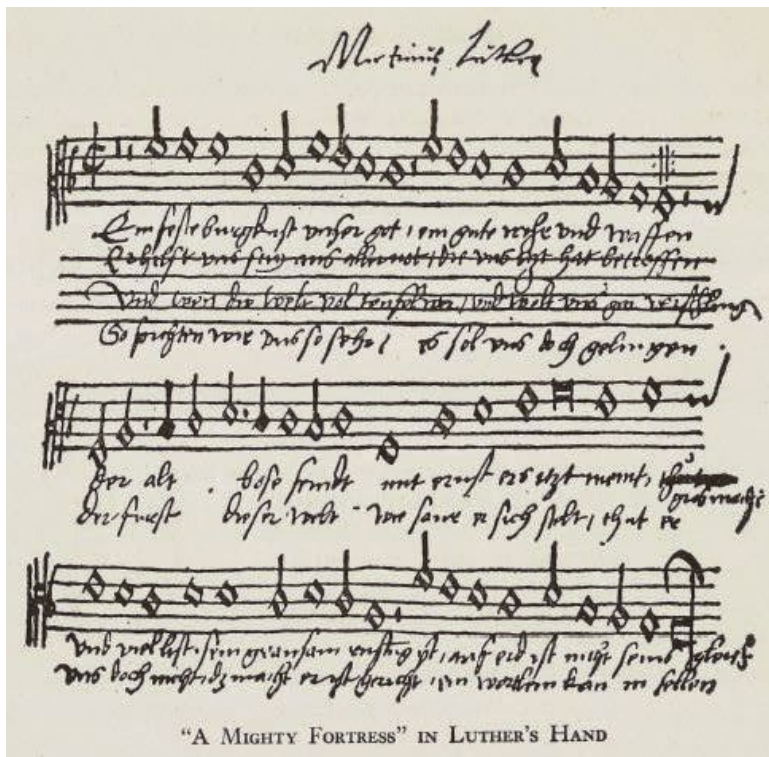 Martinus Luther
Ein feste burgk ist unser got, ein gute wehr und waffen
Er hilft uns frey aus aller not, die uns itzt hat betroffen
Und wen die welt vol teufel wer, und wolt uns gar verschling
So furchten wir uns so sehr, es sol uns doch gelingen
Der alt bose feindt mit ernst ers itzt meint,
der furst dieser welt wie saur er sich stelt, thut er
gros macht
und viel list, sein grausam rustung yst, auf erd ist nicht seins gleich
uns doch nicht, dz macht er yst gericht, ein wortlein kan in fellen
"A MIGHTY FORTRESS" IN LUTHER'S HAND